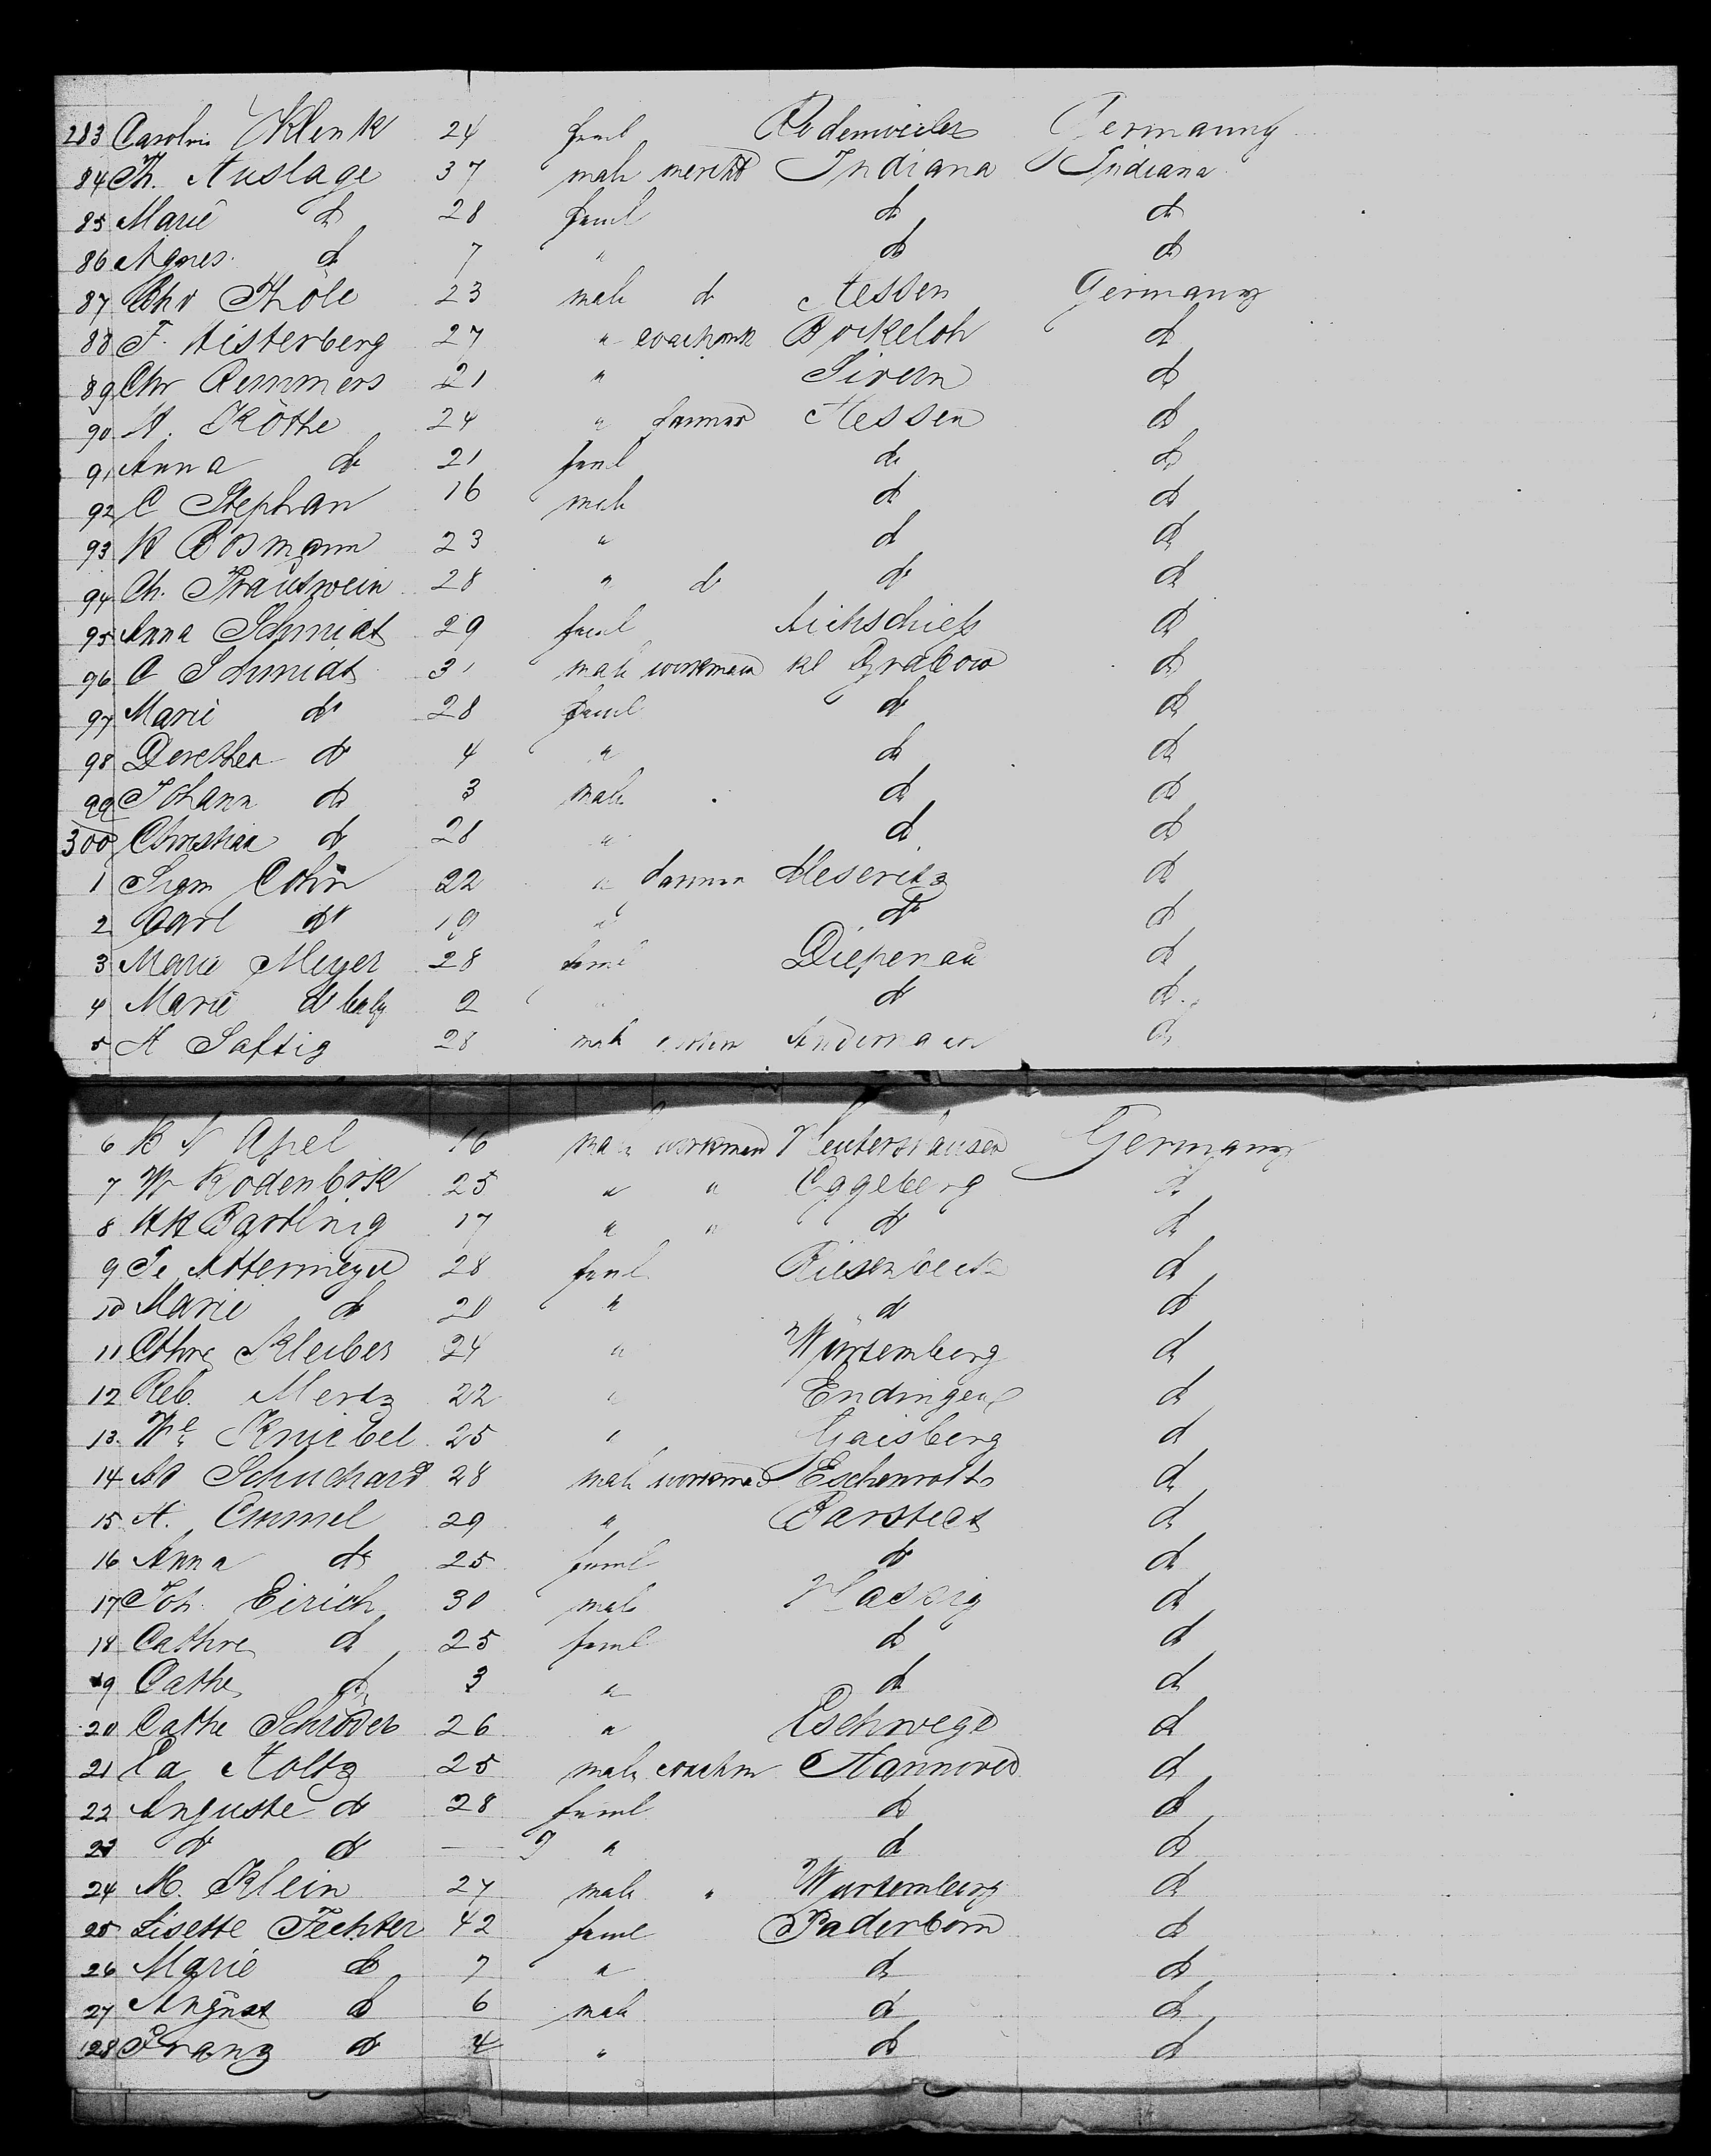 283 Carolin Klenk 24 feml Germany
84 Th. Auslage 37 male mercht Indiana Indiana
85 Marie do 28 feml do do
86 Agnes do 7 " do do
87 Chr Thöle 23 male do Hessen Germany
88 F. Histerberg 27 " coachmk Bockeloh do
89 Chr Remmers 21 " do
90 H. Köthe 24 " farmer Hessen do
91 Anna do 21 feml do do
92 C Stephan 16 male do do
93 K Bosmann 23 " do do
94 Ch. Trautwein 28 " do do do
95 Anna Schmidt 29 feml Aichschieß do
96 C Schmidt 31 male workman kl Grabow do
97 Marie do 28 feml do do
98 Dorethea do 4 " do do
99 Johann do 3 male do do
300 Christian do 28 " do do
1 Sigm Cohn 22 " farmer Meseritz do
2 Carl do 19 " do do
3 Marie Meyer 28 feml Diepenau do
4 Marie do baby 2 " do do
5 H Saftig 28 male do
6 K N Apel 16 male workman Germany
7 W Rodenbök 25 " " Eggeberg do
8 17 " " do do
9 28 feml Riesenbeck do
10 Marie do 20 " do do
11 Cthre Kleiber 24 " Würtemberg do
12 Reb. Mertz 22 " Endingen do
13 We Kniebel 25 " Gaisberg do
14 Ad Schuchard 28 male workman do
15 H. Emmel 29 " do
16 Anna do 25 feml do do
17 Joh. Eirich 30 male do
18 Cathre do 25 feml do do
19 Cathe do 3 " do do
20 Cathe Schröder 26 " Eschwege do
21 Ed Holtz 25 male coachm Hannover do
22 Auguste do 28 feml do do
23 do do — 9 " do do
24 M. Klein 27 male " Wurtemberg do
25 Lisette Fechter 42 feml Paderborn do
26 Marie do 7 " do do
27 August do 6 male do do
128 Franz do 4 " do do